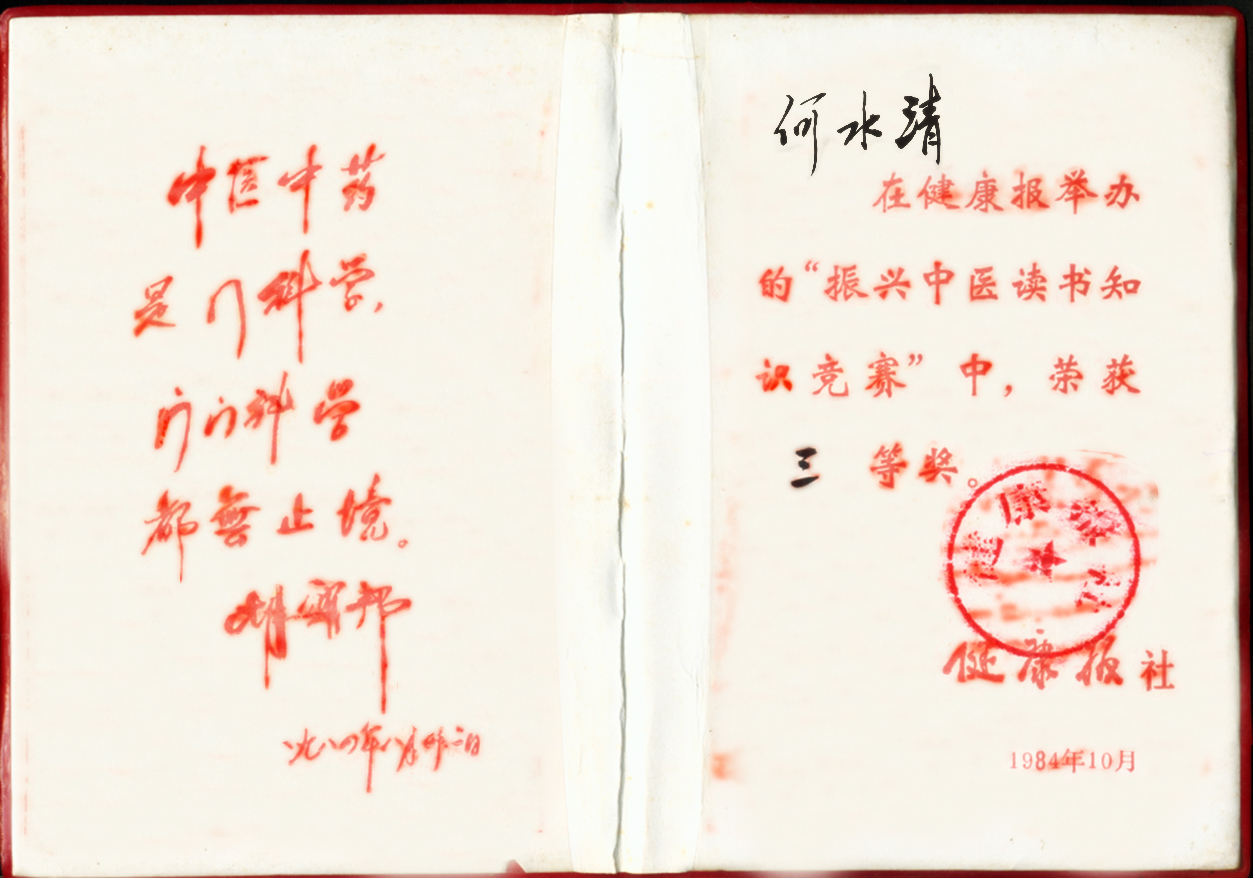 中医中药
是门科学，
门门科学
都無止境。
胡耀邦
一九八四年八月廿二日
何水清
在健康报举办
的“振兴中医读书知
识竞赛”中，荣获
三 等奖。
健康报社
健康报社
1984年10月